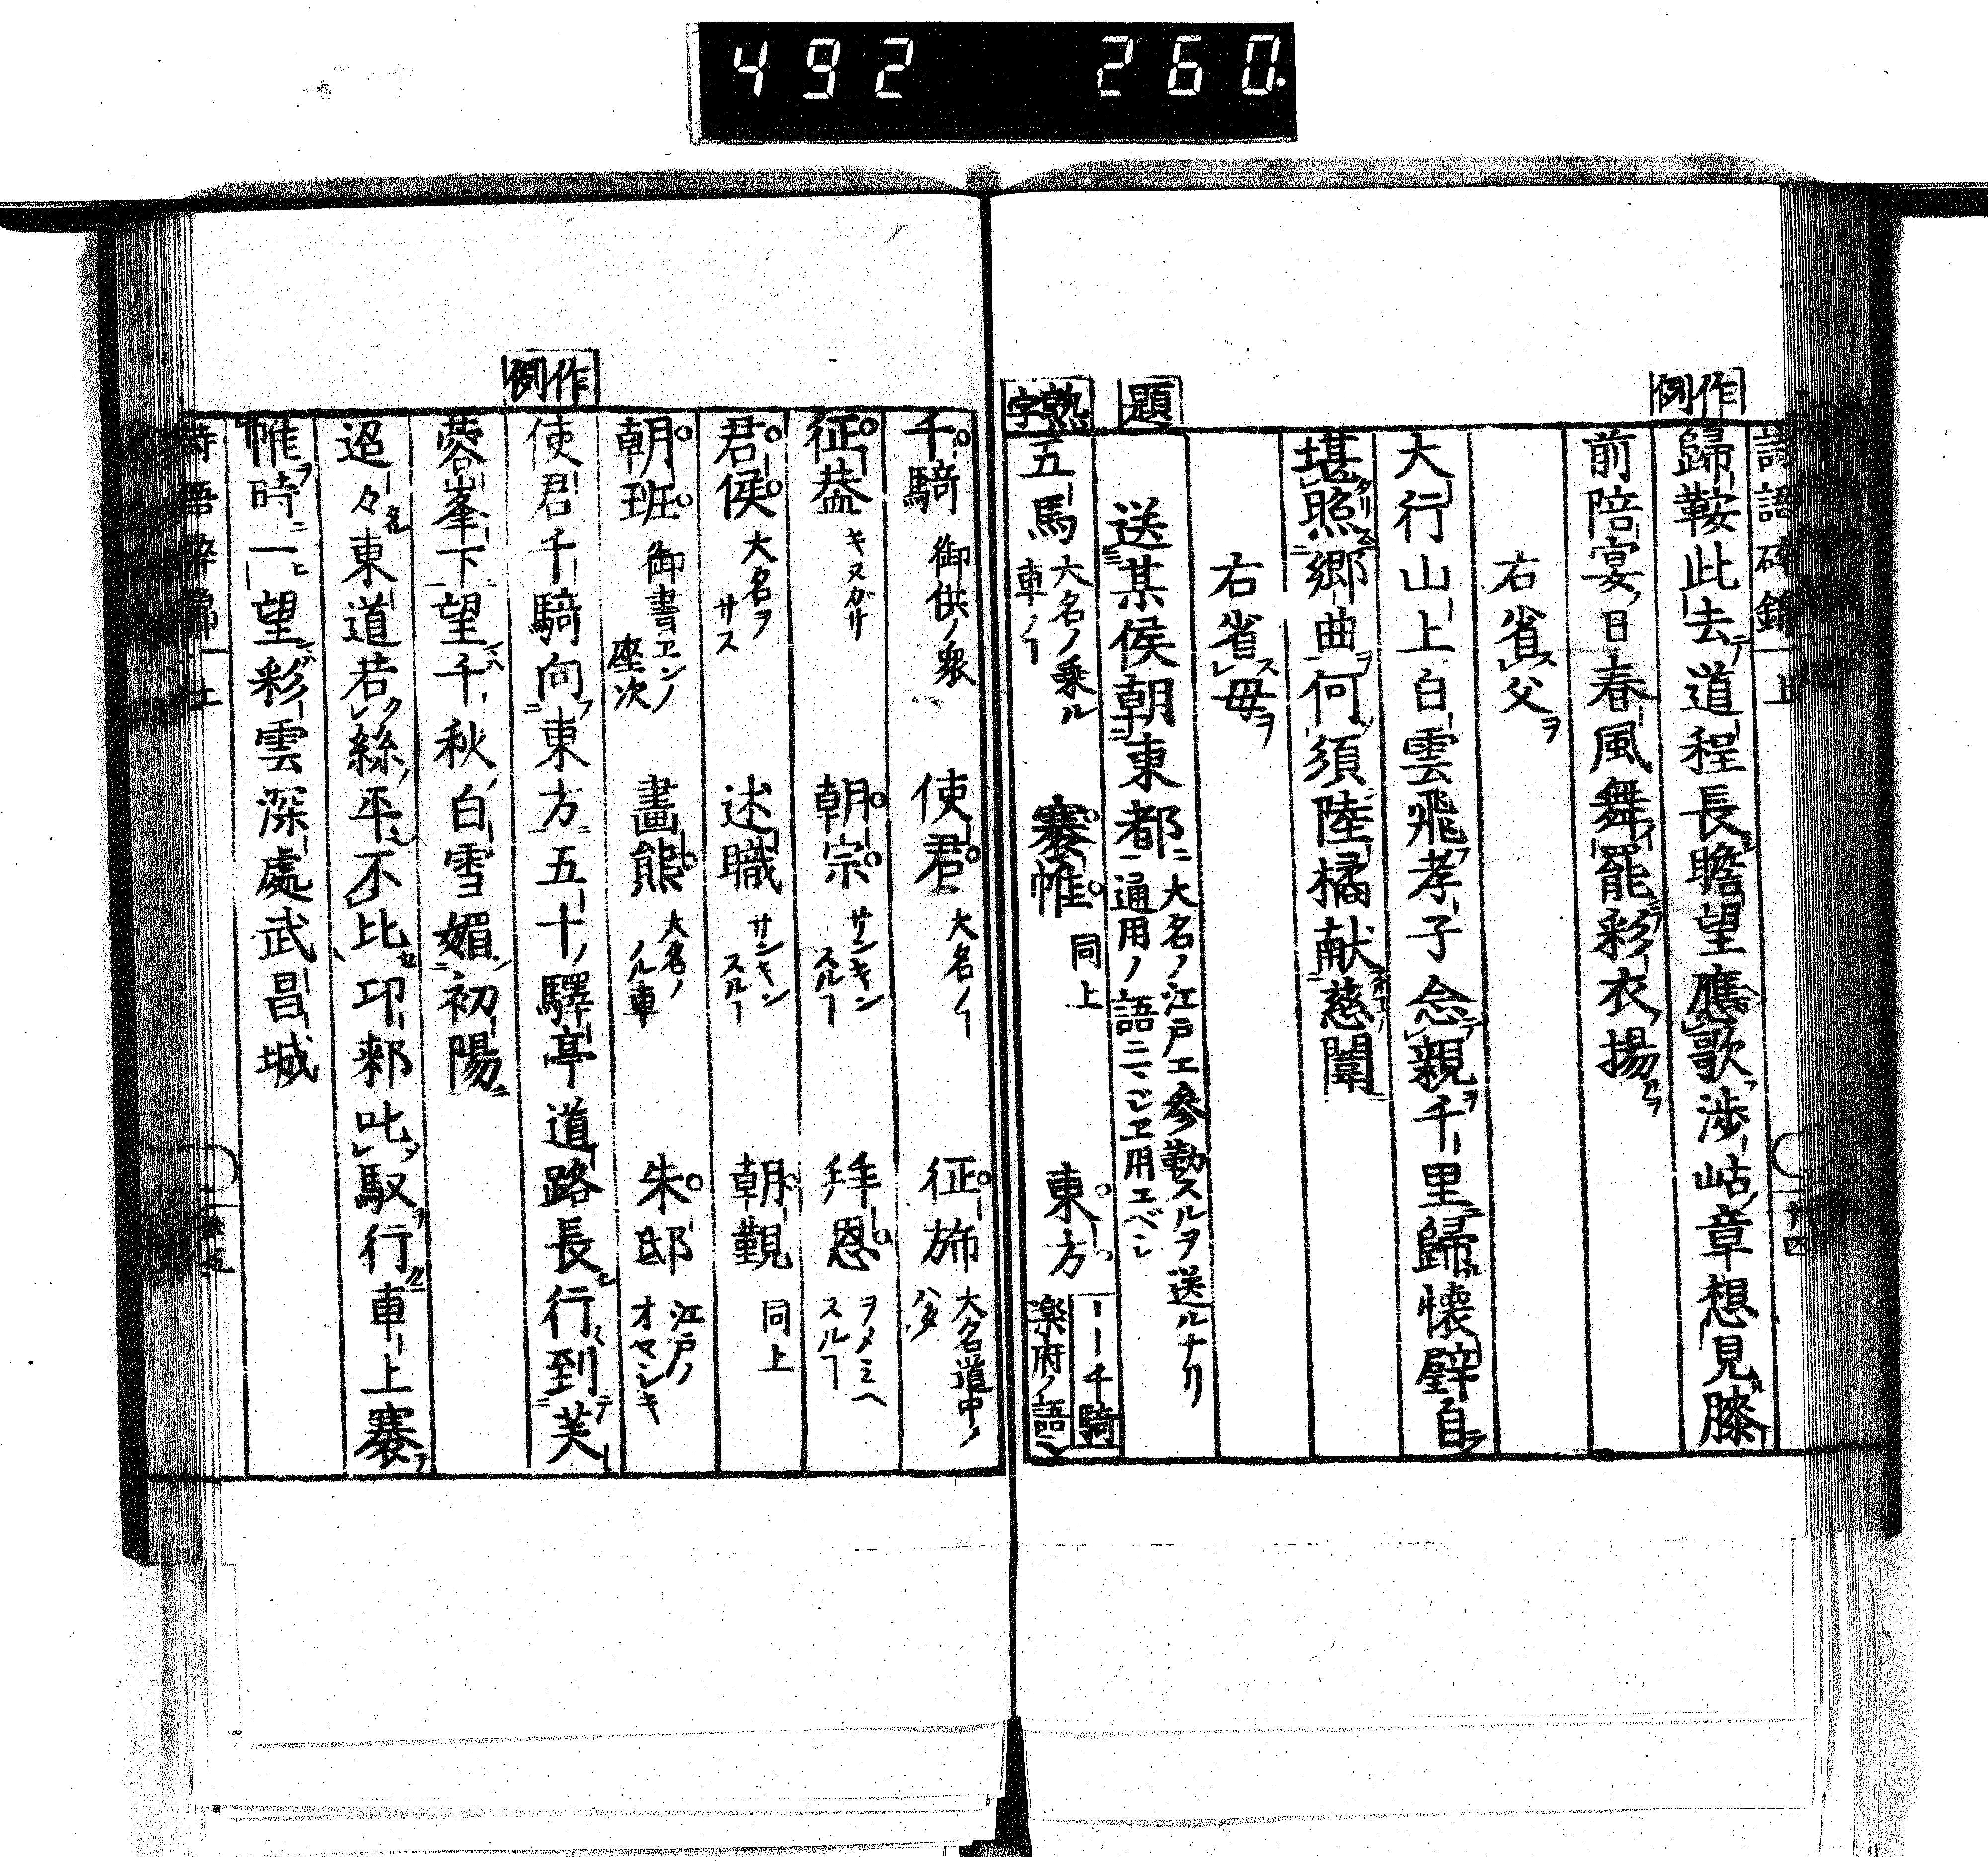 492 260.
詩語碎錦 上
作例
歸鞍此去道程長瞻望應歌涉岵章想見膝
前陪宴日春風舞罷彩衣揚
右省父
大行山上白雲飛孝子念親千里歸懷璧自
堪照鄉曲何須陸橘献慈闈
右省母
題
送某侯朝東都 大名ノ江戸エ参勤スルヲ送ルナリ
通用ノ語
熟字
五馬 大名ノ乗ル車ノヿ 褰帷 同上 東方 ーー千騎 楽府ノ語
千騎 御供ノ衆 使君 大名ノヿ 征斾 大名道中ノハタ
征蓋 キヌガサ 朝宗 サンキンスルヿ 拜恩 スルヿ
君侯 大名ヲサス 述職 サンキンスルヿ 朝覲 同上
朝班 御書エンノ座次 畫熊 大名ノノル車 朱邸 江戸ノオヤシキ
作例
使君千騎向東方五十驛亭道路長行到芙
蓉峯下望千秋白雪媚初陽
迢々東道若絲平不比邛郲叱馭行車上褰
帷時一望彩雲深處武昌城